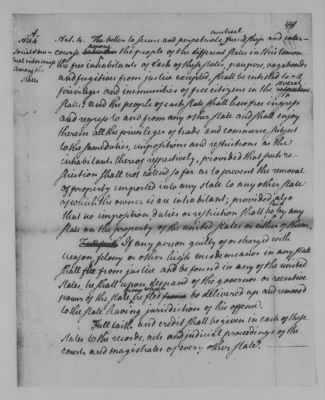 A
Art. 4. The better to secure and perpetuate mutual friendship and inter-
course among the people of the different states in this union
the free inhabitants of each of these states, paupers, vagabonds
and fugitives from justice excepted, shall be entitled to all
privileges and immunities of free citizens in the several
states & and the people of each state shall have free ingress
and regress to and from any other state and shall enjoy
therein all the privileges of trade and commerce, subject
to the same duties, impositions and restrictions as the
inhabitants thereof respectively, provided that such re-
striction shall not extend so far as to prevent the removal
of property imported into any state to any other state
of which the owner is an inhabitant; provided also
that no imposition, duties or restriction shall be laid by any
state on the property of the united states or either of them,
If any person guilty of or charged with
treason, felony or other high misdemeanor in any state
shall flee from justice and be found in any of the united
states, he shall upon demand of the governor or executive
power of the state from which he fled be delivered up and removed
to the state having jurisdiction of his offence.
Full faith and credit shall be given in each of these
states to the records, acts and judicial proceedings of the
courts and magistrates of every other state.